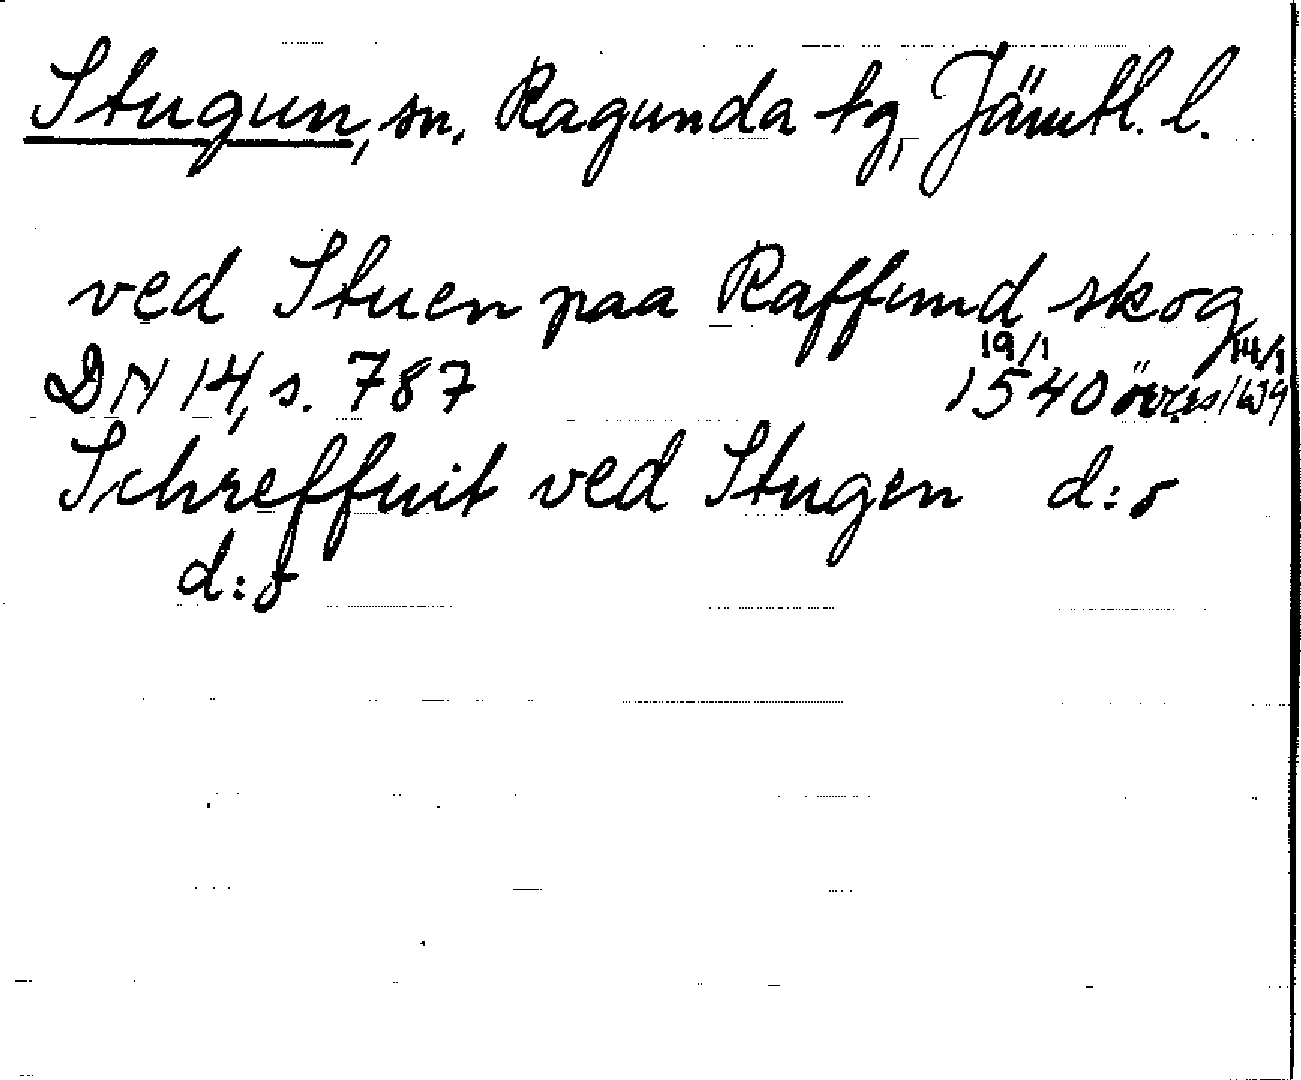 Stugun, sn, Ragunda tg, Jämtl. l.
ved Stuen paa Raffund skog
DN 14, s. 787 19/1 1540 övers/ 14/1
Schreffuit ved Stugen d:o
d:o